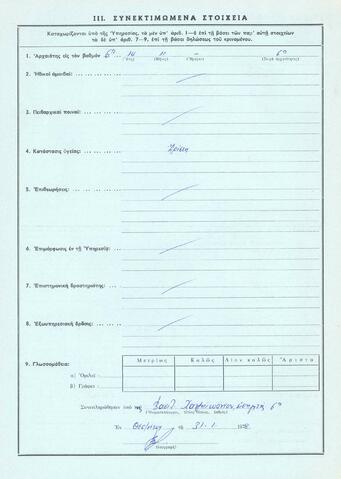 III. ΣΥΝΕΚΤΙΜΩΜΕΝΑ ΣΤΟΙΧΕΙΑ
Καταχωρίζονται ὑπὸ τῆς Ὑπηρεσίας, τὰ μὲν ὑπ' ἀριθ. 1—6 ἐπὶ τῇ βάσει τῶν παρ' αὐτῇ στοιχείων
τὰ δὲ ὑπ' ἀριθ. 7—9, ἐπὶ τῇ βάσει δηλώσεως τοῦ κρινομένου.
1. Ἀρχαιότης εἰς τὸν βαθμὸν 6ον 14 11 – 6ος
(Ἔτη) (Μῆνες) (Ἡμέραι) (Σειρὰ ἀρχαιότητος)
2. Ἠθικαὶ ἀμοιβαί:
3. Πειθαρχικαὶ ποιναί:
4. Κατάστασις ὑγείας:
5. Ἐπιθεωρήσεις:
6. Ἐπιμόρφωσις ἐν τῇ Ὑπηρεσίᾳ:
7. Ἐπιστημονικὴ δραστηριότης:
8. Ἐξωυπηρεσιακὴ δρᾶσις:
9. Γλωσσομάθεια: Μετρίως Καλῶς Λίαν καλῶς Ἄριστα
α) Ὁμιλεῖ:
β) Γράφει:
Συνεπληρώθησαν ὑπὸ τοῦ
Ἐν τῇ 31-1
(ὑπογραφή)